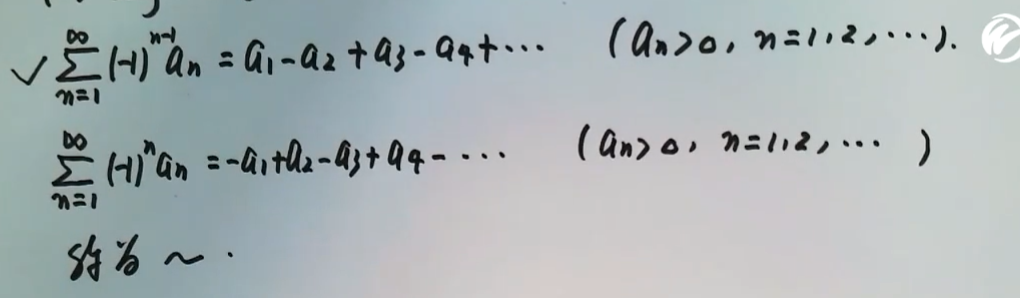 ✓ ∑_{n=1}^{∞} (-1)^{n-1} a_n = a_1 - a_2 + a_3 - a_4 + ··· (a_n > 0, n = 1, 2, ···).
∑_{n=1}^{∞} (-1)^n a_n = -a_1 + a_2 - a_3 + a_4 - ··· (a_n > 0, n = 1, 2, ···)
为 ~ .